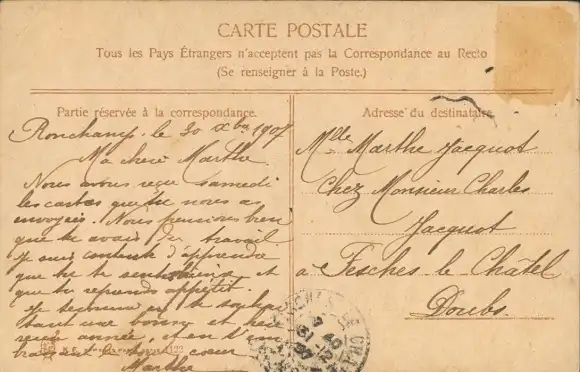 CARTE POSTALE
Tous les Pays Étrangers n'acceptent pas la Correspondance au Recto
(Se renseigner à la Poste.)
Partie réservée à la correspondance.
Ronchamp, le 30 Xbre 1907
Ma chère Marthe
Nous avons reçu samedi
les cartes que tu nous as
envoyées. Nous pensions bien
que tu avais du travail
Je suis contente d'apprendre
que tu te sens mieux et
que tu reprends appétit.
Je termine en te souhai
tant une bonne et heu
reuse année, et en t'em
brassant de tout cœur
Marthe
Adresse du destinataire
Mlle Marthe Jacquot
Chez Monsieur Charles
Jacquot
à Fesches-le-Châtel
Doubs.
FESCHES-LE-CHA
7 40
31-12
07